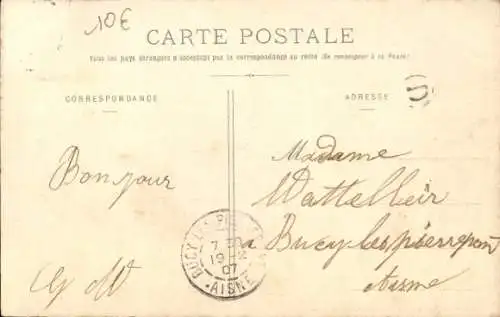 10€
CARTE POSTALE
Tous les pays étrangers n'acceptent pas la correspondance au recto (Se renseigner à la Poste)
CORRESPONDANCE
ADRESSE
Bonjour
Madame
Wattelier
à Bucy les pierrepont
Aisne
BUCY LES PIE
7
19
07
AISNE